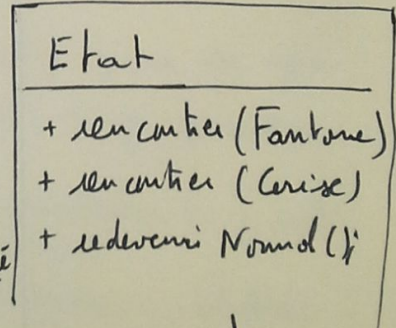 Etat
+ rencontrer (Fantome)
+ rencontrer (Cerise)
é + redevenir Normal ();